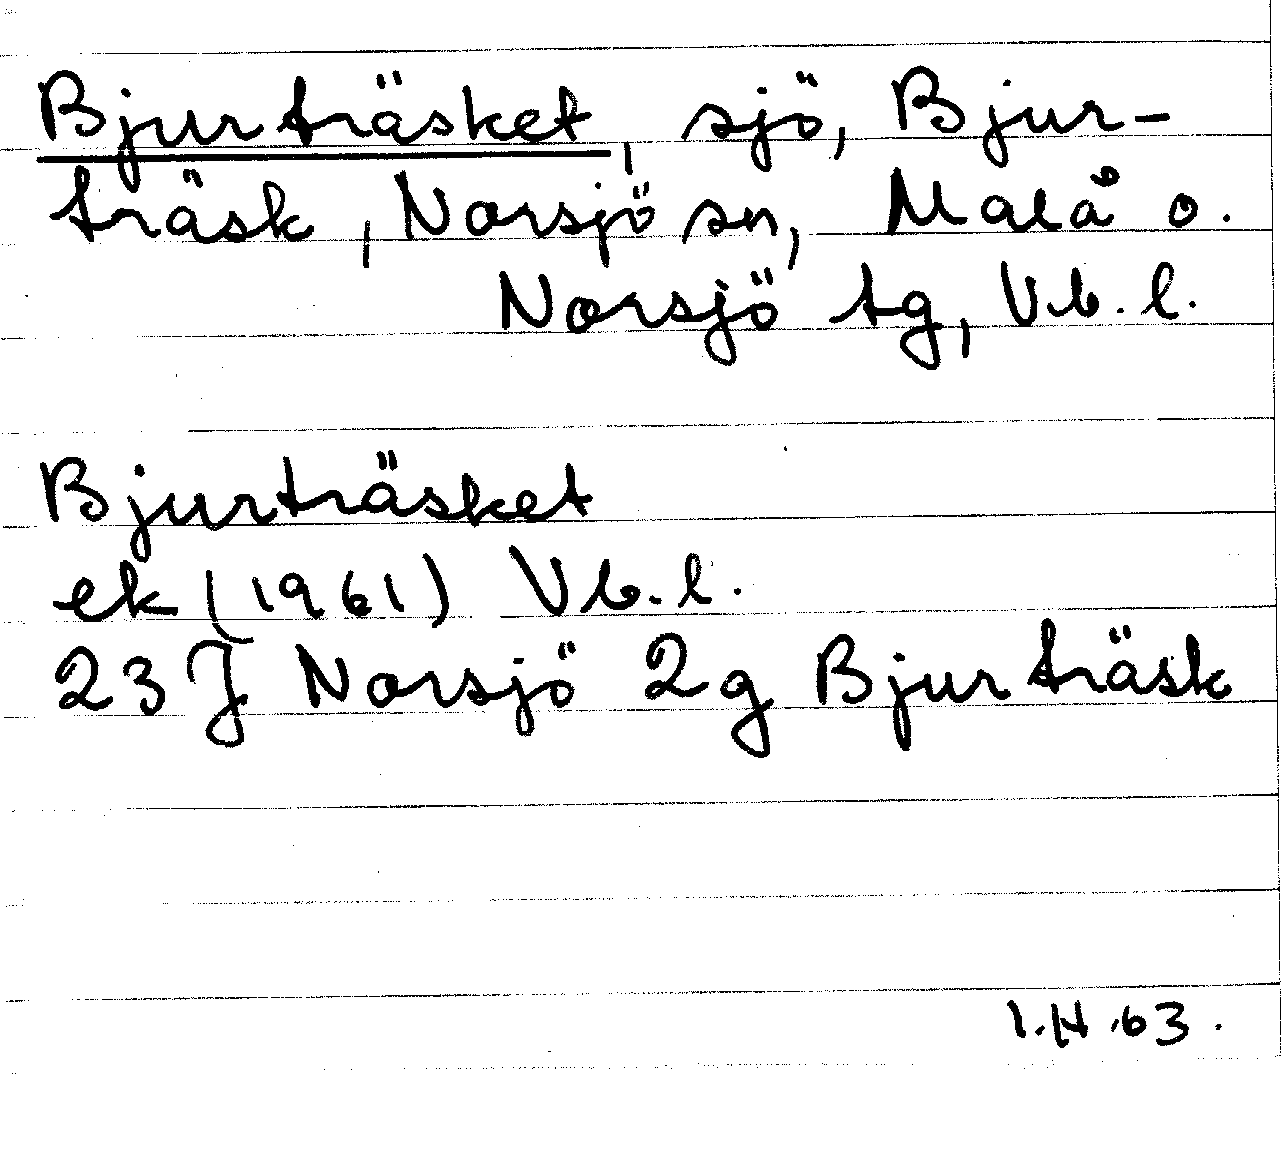 Bjurträsket, sjö, Bjur-
träsk, Norsjö sn, Malå o.
Norsjö tg, Vb. l.
Bjurträsket
ek (1961) Vb. l.
23 J Norsjö 2g Bjurträsk
I.H.63.